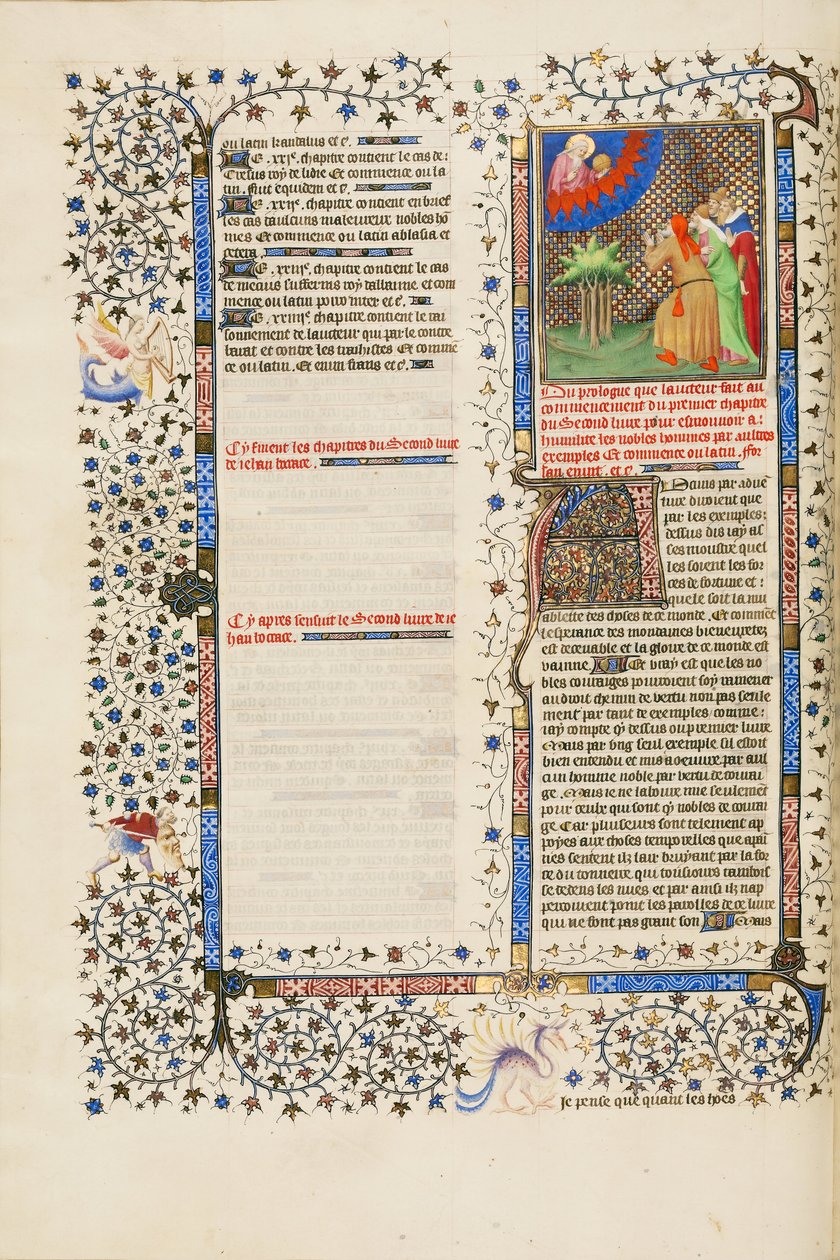 ou latin kandalus et cͤ.
Le .xxiͤ. chapitre contient le cas de:
Cresus roy de lidie Et commence ou la
tin. fuit equidem et cͤ.
Le .xxiiͤ. chapitre contient en brief
les cas daulcuns maleureux nobles hō
mes Et commence ou latin ablasia et
cetera.
Le .xxiiiͤ. chapitre contient le cas
de mecius suffecius roy dallaine. et com
mence ou latin
Le .xxiiiiͤ. chapitre contient le rai
sonnement de lauteur qui parle contre
barat et contre les trahistres Et commē
ce ou latin. Et enim fraus et cͤ.
Cy finent les chapitres du Second liure
de iehan bocace.
Cy apres sensuit le Second liure de ie
han bocace.
Du prologue que lauteur fait au
commencement du premier chapitre
du Second liure pour esmouuoir a:
humilite les nobles hommes par aultres
exemples Et commence ou latin. ffor
san erunt. et cͤ.
Alcuns par aduē
ture diroient que
par les exemples:
dessus dis iay as
ses moustre quel
les soient les for
ces de fortune et:
quele soit la mu
ablette des choses de ce monde. Et commēt
lesperance des mondaines bieneuretez
est deceuable et la gloire de ce monde est
vainne. Et vray est que les no
bles couraiges pourroient soy ramener
au droit chemin de vertu non pas seule
ment par tant de exemples comme:
iay compte cy dessus ou premier liure
Mais par vng seul exemple sil estoit
bien entendu et mis a oeuure par aul
cun homme noble par vertu de courai
ge. Mais ie ne laboure mie seulement
pour ceulx qui sont cy nobles de courai
ge Car plusieurs sont telement ap
poyes aux choses temporelles que apai
nes sentent ilz lair bruyant par la for
ce du tonnerre qui tousiours tamboise
se dedens les nues et par ainsi ilz nap
percoiuent point les parolles de ce liure
qui ne font pas grant son Mais
Je pense que quant les hōes